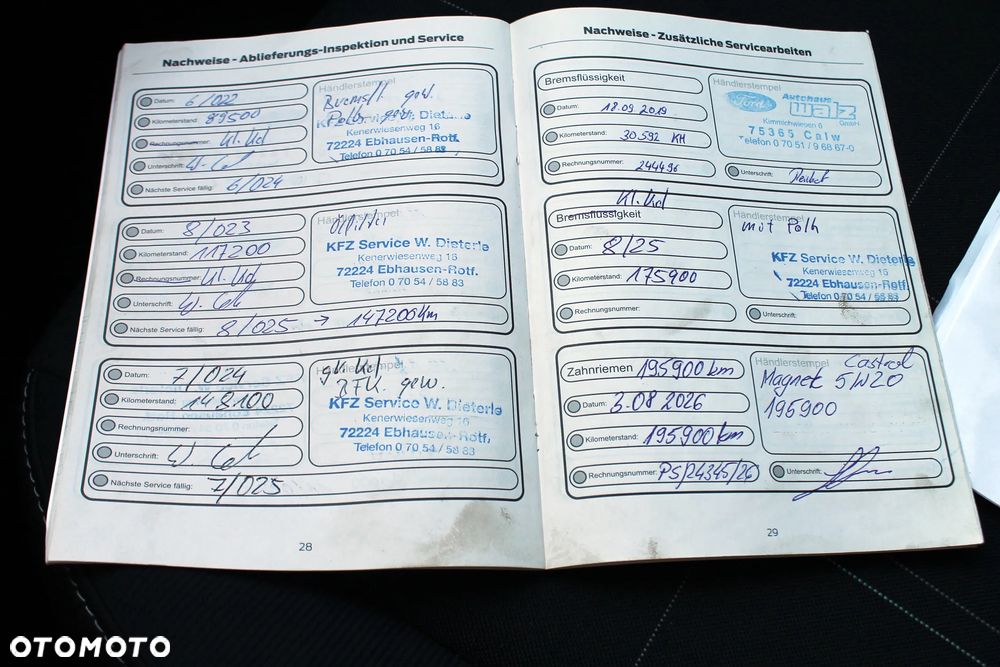 Nachweise - Ablieferungs-Inspektion und Service
Datum: 6/022
Kilometerstand: 89500
Rechnungsnummer: Kl. Kd
Unterschrift:
Nächste Service fällig: 6/024
Händlerstempel
Bremsfl. gew.
Poll. gew.
KFZ Service W. Dieterle
Kenerwiesenweg 16
72224 Ebhausen-Rotf.
Telefon 0 70 54 / 58 83
Datum: 8/023
Kilometerstand: 117200
Rechnungsnummer: Kl. Kd
Unterschrift:
Nächste Service fällig: 8/025 → 147200 km
Händlerstempel
KFZ Service W. Dieterle
Kenerwiesenweg 16
72224 Ebhausen-Rotf.
Telefon 0 70 54 / 58 83
Datum: 7/024
Kilometerstand: 148100
Rechnungsnummer:
Unterschrift:
Nächste Service fällig: 7/025
Händlerstempel
gr. Kd
BFL. gew.
KFZ Service W. Dieterle
Kenerwiesenweg 16
72224 Ebhausen-Rotf.
Telefon 0 70 54 / 58 83
28
Nachweise - Zusätzliche Servicearbeiten
Bremsflüssigkeit
Datum: 18.09 2019
Kilometerstand: 30592 KM
Rechnungsnummer: 244496
Händlerstempel
Ford
Autohaus
walz
GmbH
Kimmichwiesen 6
75365 Calw
Telefon 0 70 51 / 9 68 67-0
Unterschrift:
Kl. Kd
Bremsflüssigkeit
Datum: 8/25
Kilometerstand: 175900
Rechnungsnummer:
Händlerstempel
mit Poll
KFZ Service W. Dieterle
Kenerwiesenweg 16
72224 Ebhausen-Rotf.
Telefon 0 70 54 / 58 83
Unterschrift:
Zahnriemen 195900 km
Datum: 3.08 2026
Kilometerstand: 195900 km
Rechnungsnummer: PS/24345/26
Händlerstempel Castrol
Magnet 5W20
195900
Unterschrift:
29
OTOMOTO